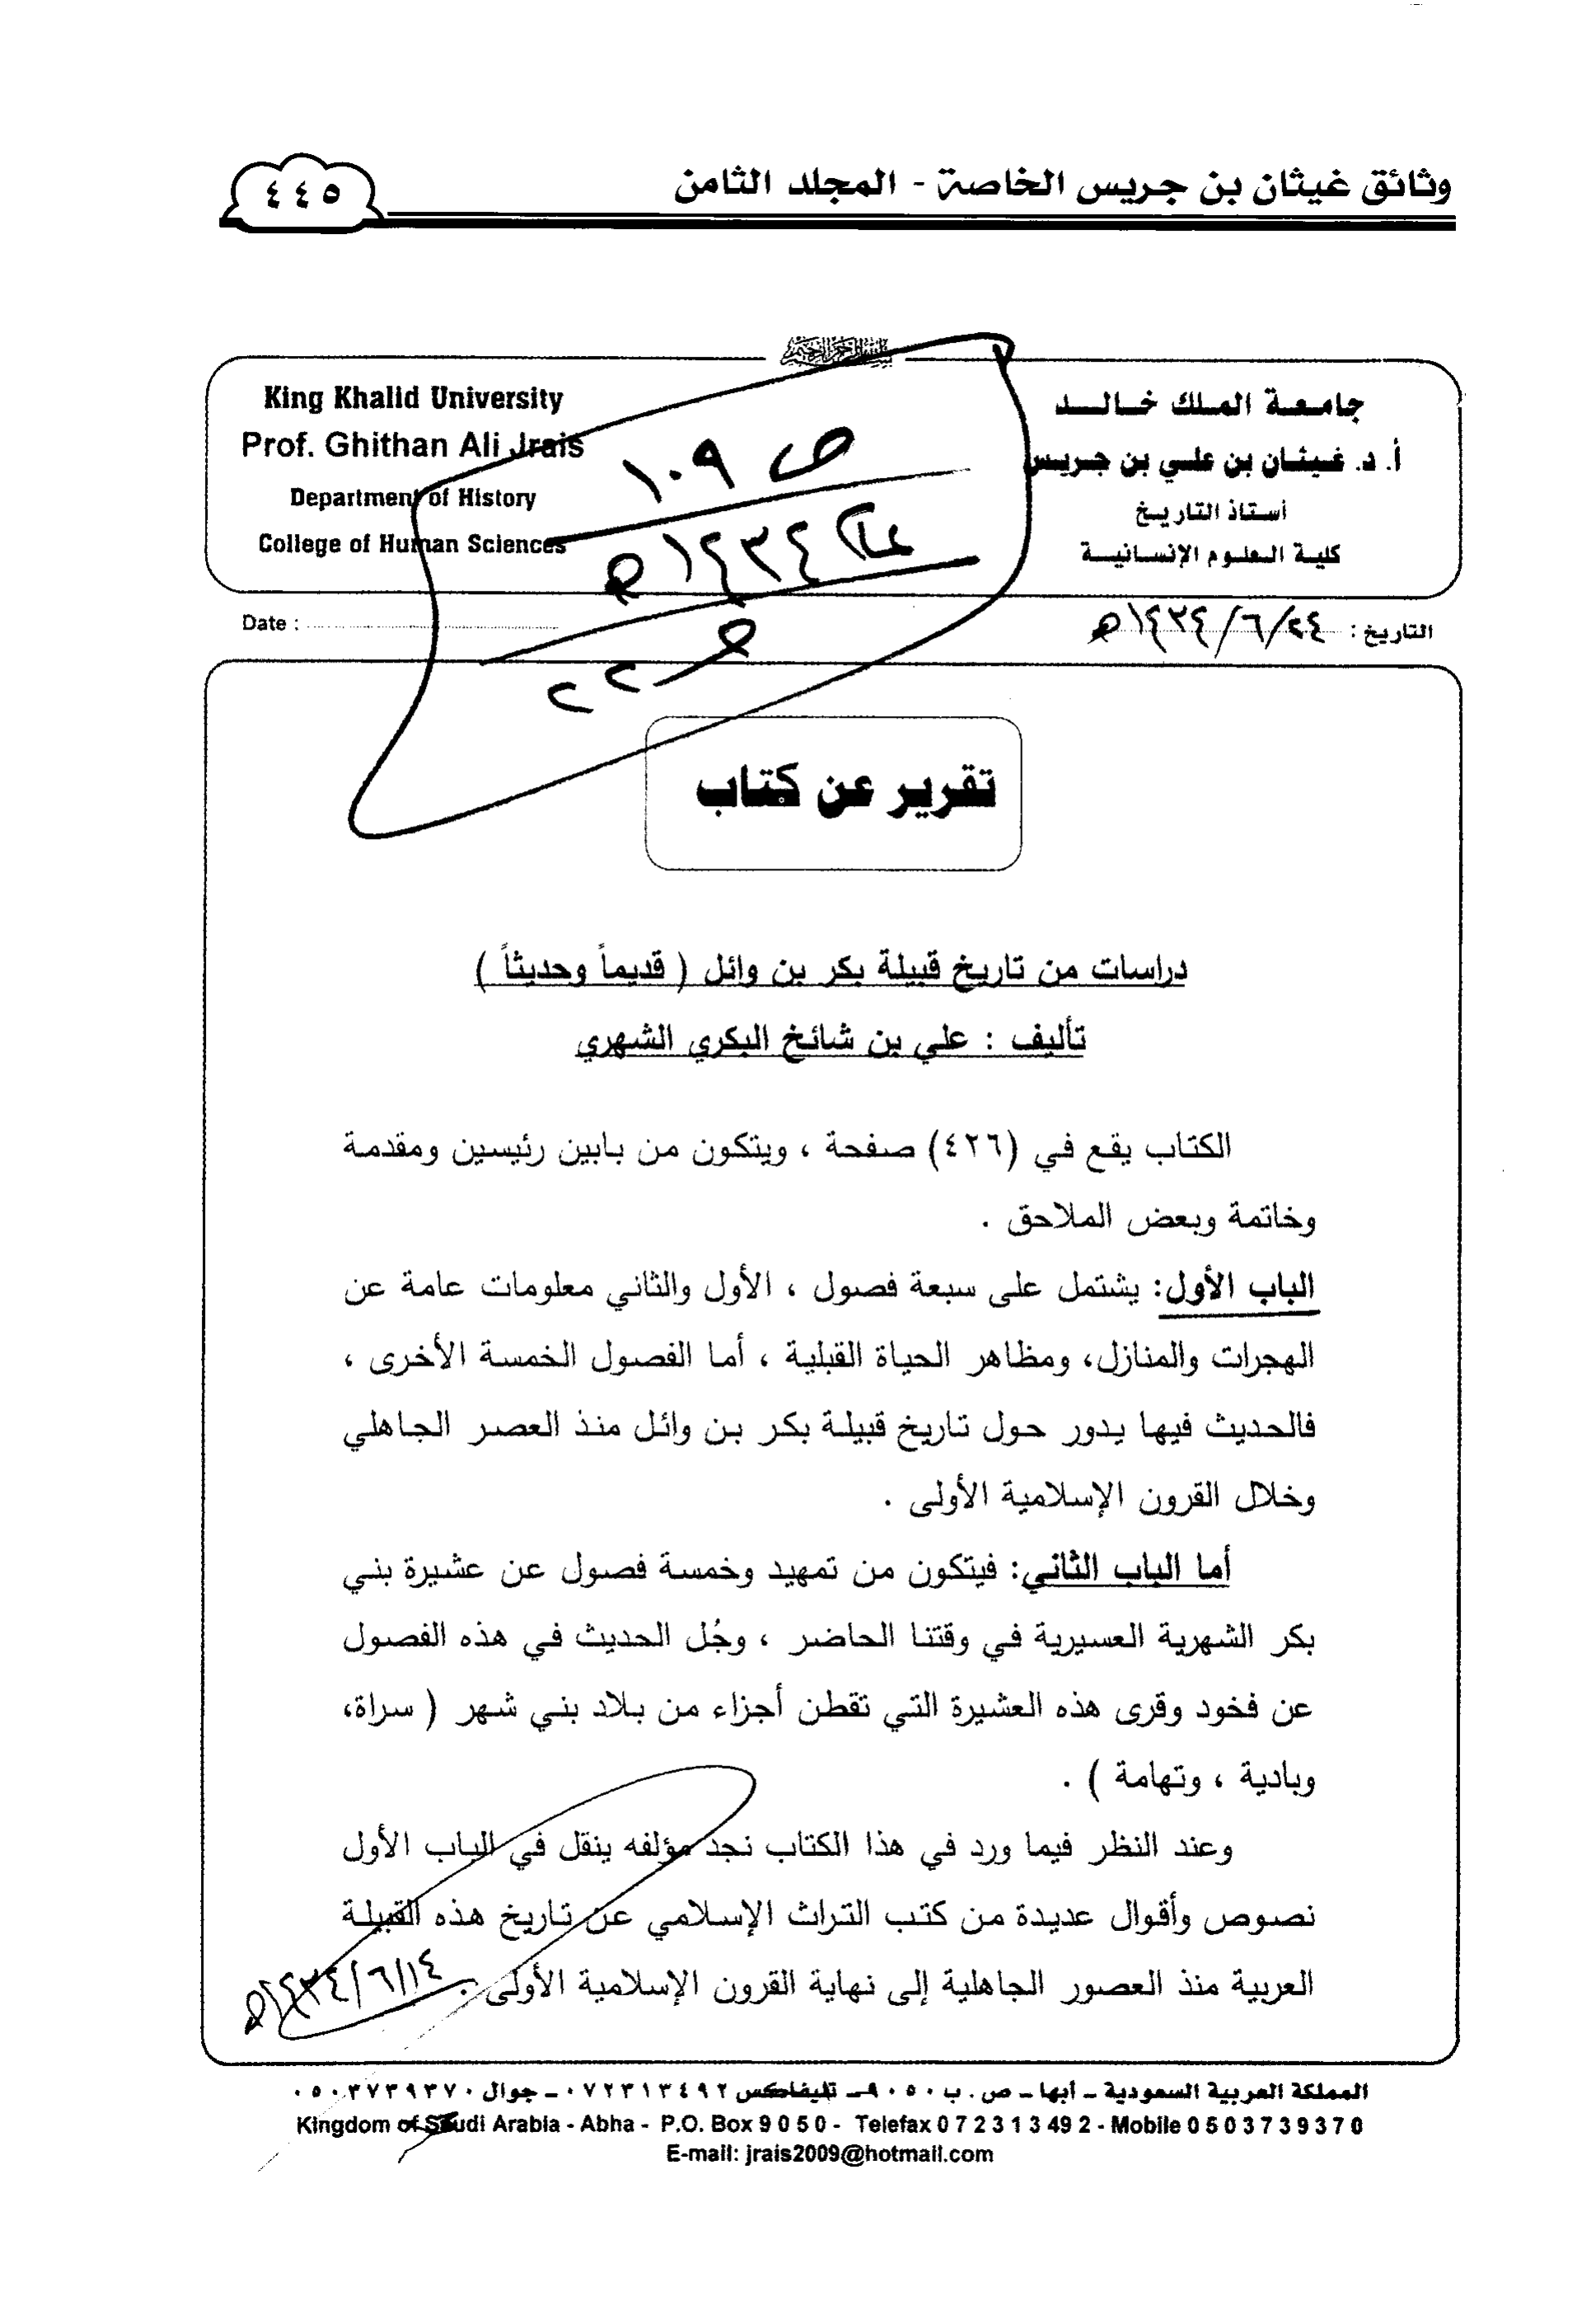 وثائق غيثان بن جريس الخاصة - المجلد الثامن
٤٤٥
بسم الله الرحمن الرحيم
جامعة الملك خالد
أ. د. غيثان بن علي بن جريس
أستاذ التاريخ
كلية العلوم الإنسانية
King Khalid University
Prof. Ghithan Ali Jrais
Department of History
College of Human Sciences
ص ١٠٩
١٤٣٤هـ
٢٢
التاريخ : ٢٤/٦/١٤٣٤هـ
Date :
تقرير عن كتاب
دراسات من تاريخ قبيلة بكر بن وائل ( قديماً وحديثاً )
تأليف : علي بن شائخ البكري الشهري
الكتاب يقع في (٤٢٦) صفحة ، ويتكون من بابين رئيسين ومقدمة
وخاتمة وبعض الملاحق .
الباب الأول: يشتمل على سبعة فصول ، الأول والثاني معلومات عامة عن
الهجرات والمنازل، ومظاهر الحياة القبلية ، أما الفصول الخمسة الأخرى ،
فالحديث فيها يدور حول تاريخ قبيلة بكر بن وائل منذ العصر الجاهلي
وخلال القرون الإسلامية الأولى .
أما الباب الثاني: فيتكون من تمهيد وخمسة فصول عن عشيرة بني
بكر الشهرية العسيرية في وقتنا الحاضر ، وجُل الحديث في هذه الفصول
عن فخود وقرى هذه العشيرة التي تقطن أجزاء من بلاد بني شهر ( سراة،
وبادية ، وتهامة ) .
وعند النظر فيما ورد في هذا الكتاب نجد مؤلفه ينقل في الباب الأول
نصوص وأقوال عديدة من كتب التراث الإسلامي عن تاريخ هذه القبيلة
العربية منذ العصور الجاهلية إلى نهاية القرون الإسلامية الأولى .
١٤/٦/١٤٣٤هـ
المملكة العربية السعودية – أبها – ص . ب ٩٠٥٠ – تليفاكس ٠٧٢٣١٣٤٩٢ – جوال ٠٥٠٣٧٣٩٣٧٠
Kingdom of Saudi Arabia - Abha - P.O. Box 9 0 5 0 - Telefax 0 7 2 3 1 3 49 2 - Mobile 0 5 0 3 7 3 9 3 7 0
E-mail: jrais2009@hotmail.com